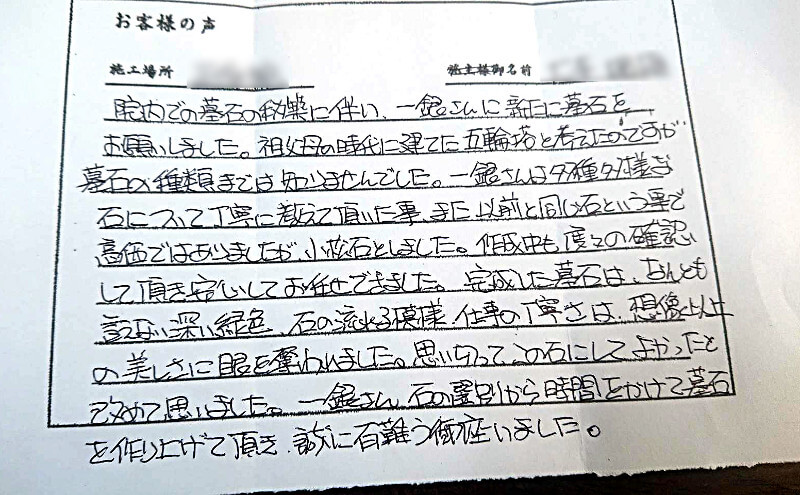 お客様の声
施工場所
施主様御名前
院内での墓石の移築に伴い、一銀さんに新たに墓石を
お願いしました。祖父母の時代に建てた五輪塔と考えたのですが
墓石の種類までは知りませんでした。一銀さんは多種多様な
石について丁寧に教えて頂いた事、また以前と同じ石という事で
高価ではありましたが、小松石としました。作成中も度々の確認
して頂き安心してお任せできました。完成した墓石は、なんとも
言えない深い緑色、石の流れる模様、仕事の丁寧さは、想像以上
の美しさに眼を奪われました。思い切ってこの石にしてよかったと
改めて思いました。一銀さん、石の選別から時間をかけて墓石
を作り上げて頂き、誠に有難う御座いました。